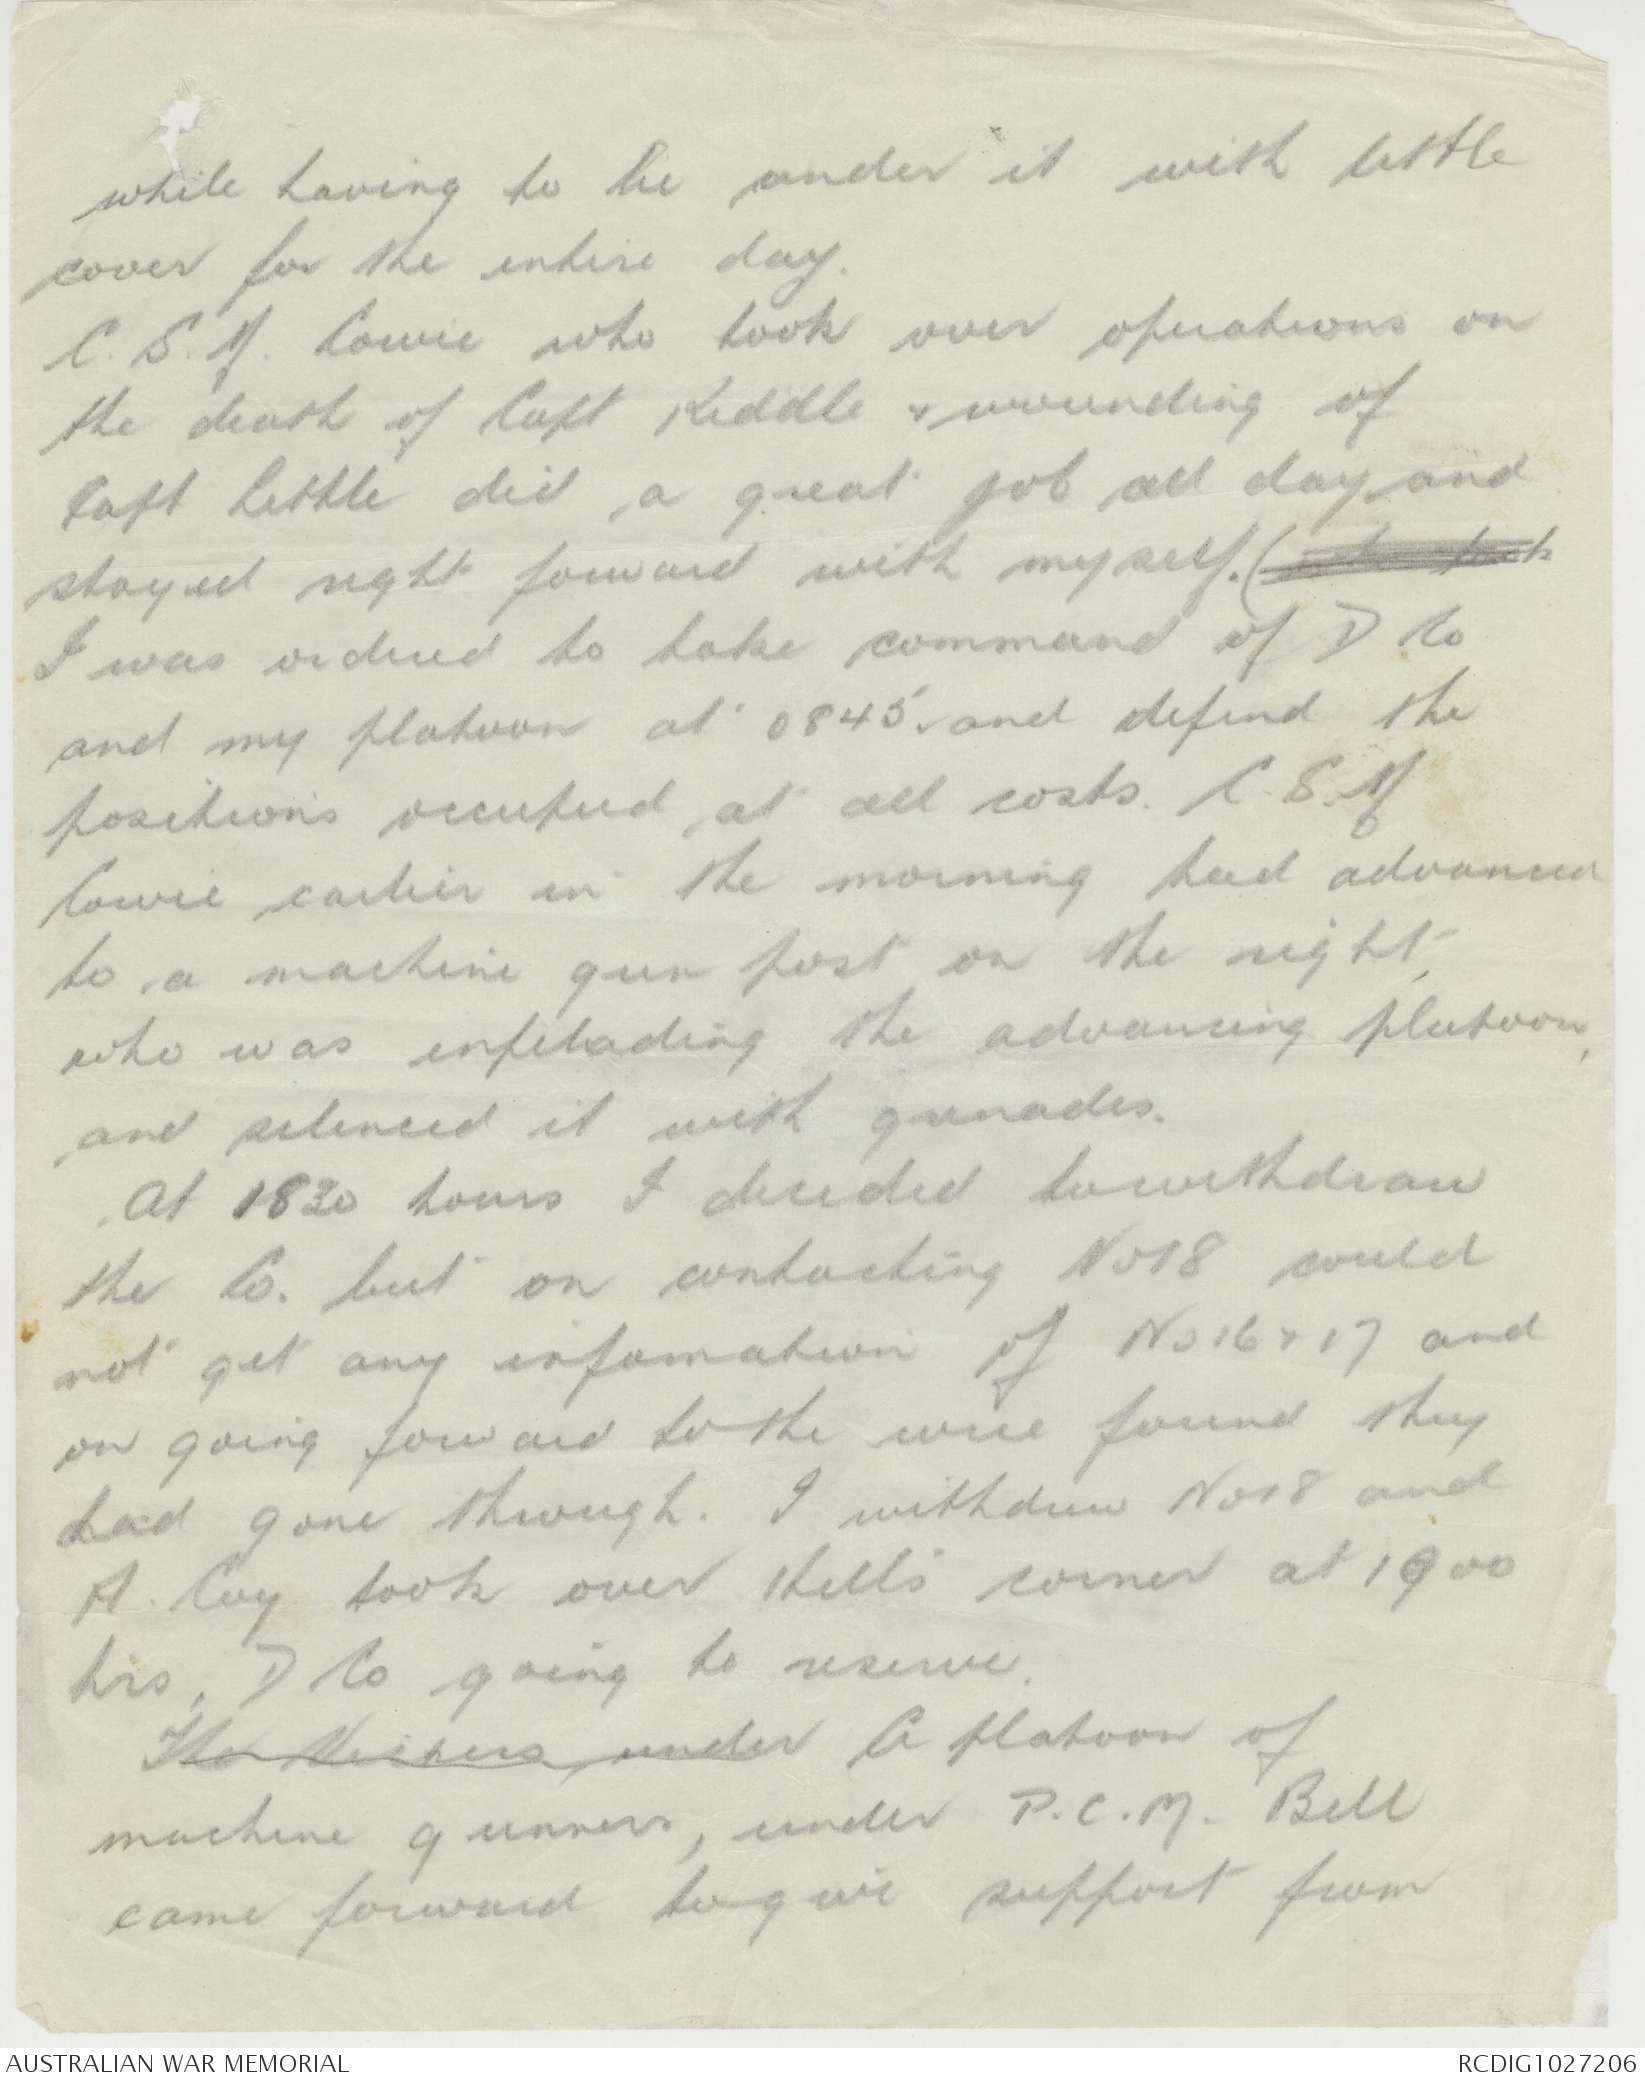 while having to lie under it with little
cover for the entire day.
C.S.M. Cowie who took over operations on
the death of Capt Kiddle & wounding of
Capt Little did a great job all day and
stayed right forward with myself. (
I was ordered to take command of D Co
and my platoon at 0845. and defend the
positions occupied at all costs. C.S.M
Cowie earlier in the morning had advanced
to a machine gun post on the right,
who was enfilading the advancing platoon,
and silenced it with grenades.
At 1830 hours I decided to withdraw
the Co. but on contacting No 18 could
not get any infomation of No 16 & 17 and
on going forward to the wire found they
had gone through. I withdrew No 18 and
A. Coy took over Hell's corner at 1900
hrs, D Co going to reserve.
The Vickers under A platoon of
machine gunners, under P.C.M. Bell
came forward to give support from
AUSTRALIAN WAR MEMORIAL
RCDIG1027206